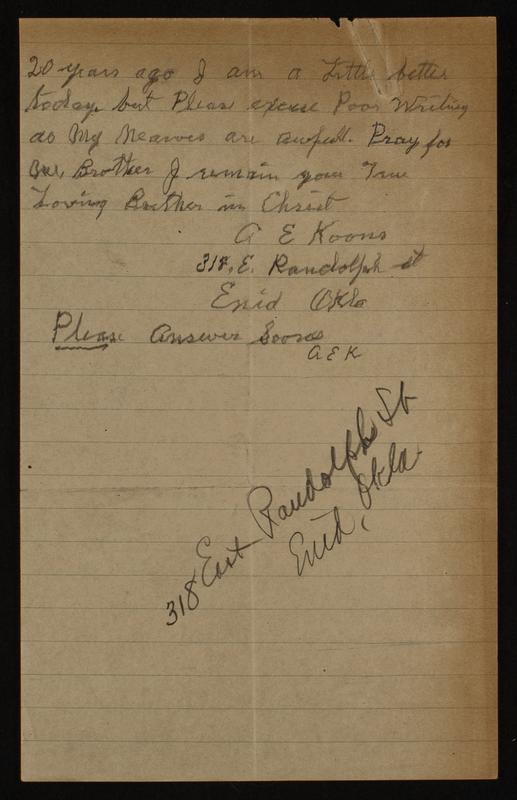 20 years ago I am a Little better
today. but Please excuse Poor Writing
as My Nearves are
Pray for
me, Brother I remain your True
Loving Brother in Christ
A E Koons
318. E. Randolph st
Enid Okla
Please Answer Soon
A E K
318 East Randolph St
Enid, Okla